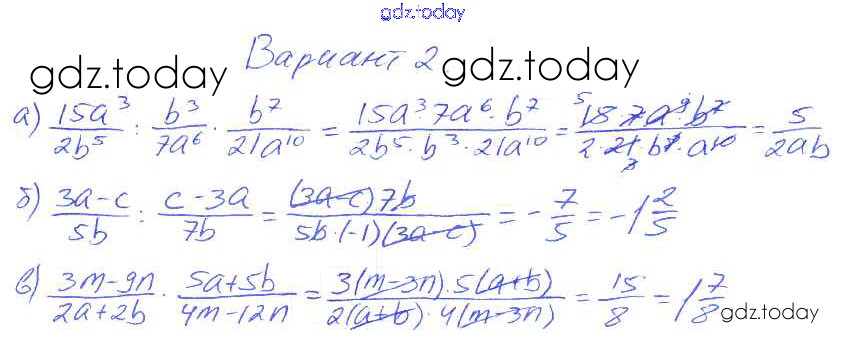 gdz.today
Вариант 2
gdz.today gdz.today
а) 15a³/2b⁵ : b³/7a⁶ · b⁷/21a¹⁰ = 15a³·7a⁶·b⁷/2b⁵·b³·21a¹⁰ = 5 15·7a⁹b⁷/2·21·b⁸·a¹⁰ 3 = 5/2ab
б) 3a-c/5b : c-3a/7b = (3a-c)7b/5b·(-1)(3a-c) = -7/5 = -1 2/5
в) 3m-9n/2a+2b · 5a+5b/4m-12n = 3(m-3n)·5(a+b)/2(a+b)·4(m-3n) = 15/8 = 1 7/8
gdz.today